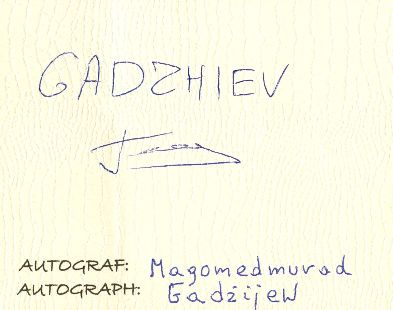 GADZHIEV
AUTOGRAF: Magomedmurad
AUTOGRAPH: Gadżijew